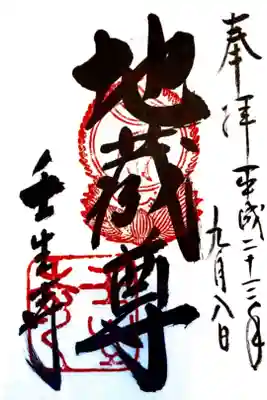 奉拝 平成二十三年
九月八日
地蔵尊
壬生寺